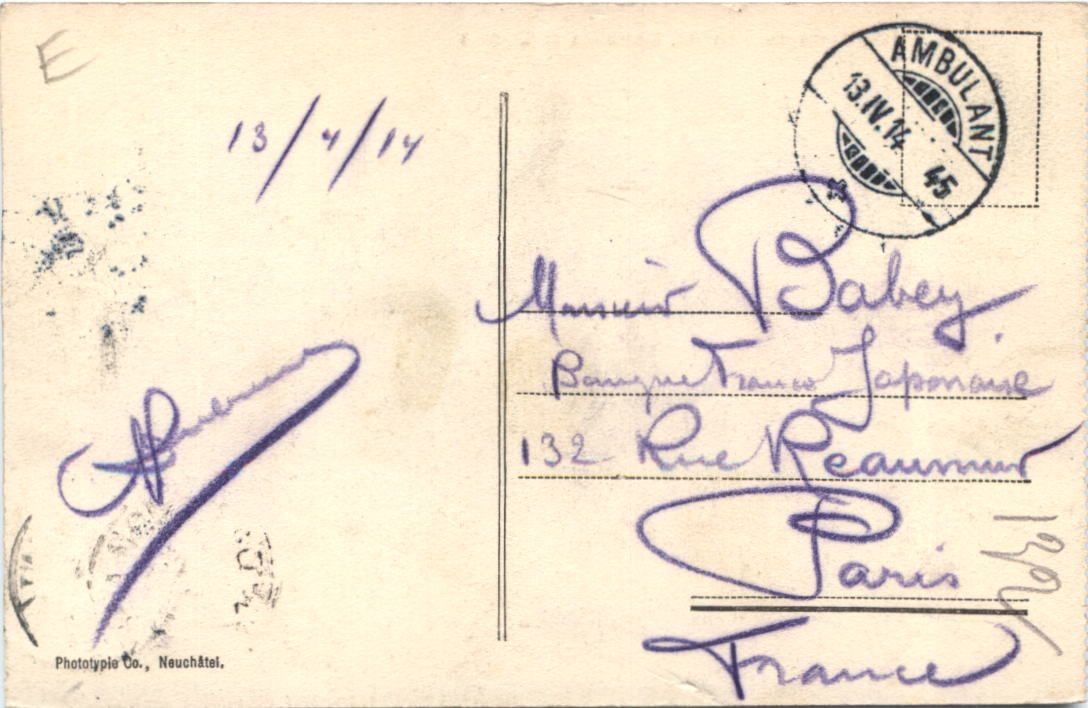 E
13/4/14
AMBULANT
13.IV.14
45
Monsieur Babey
Banque Franco Japonaise
132 Rue Réaumur
Paris
France
Phototypie Co., Neuchâtel.